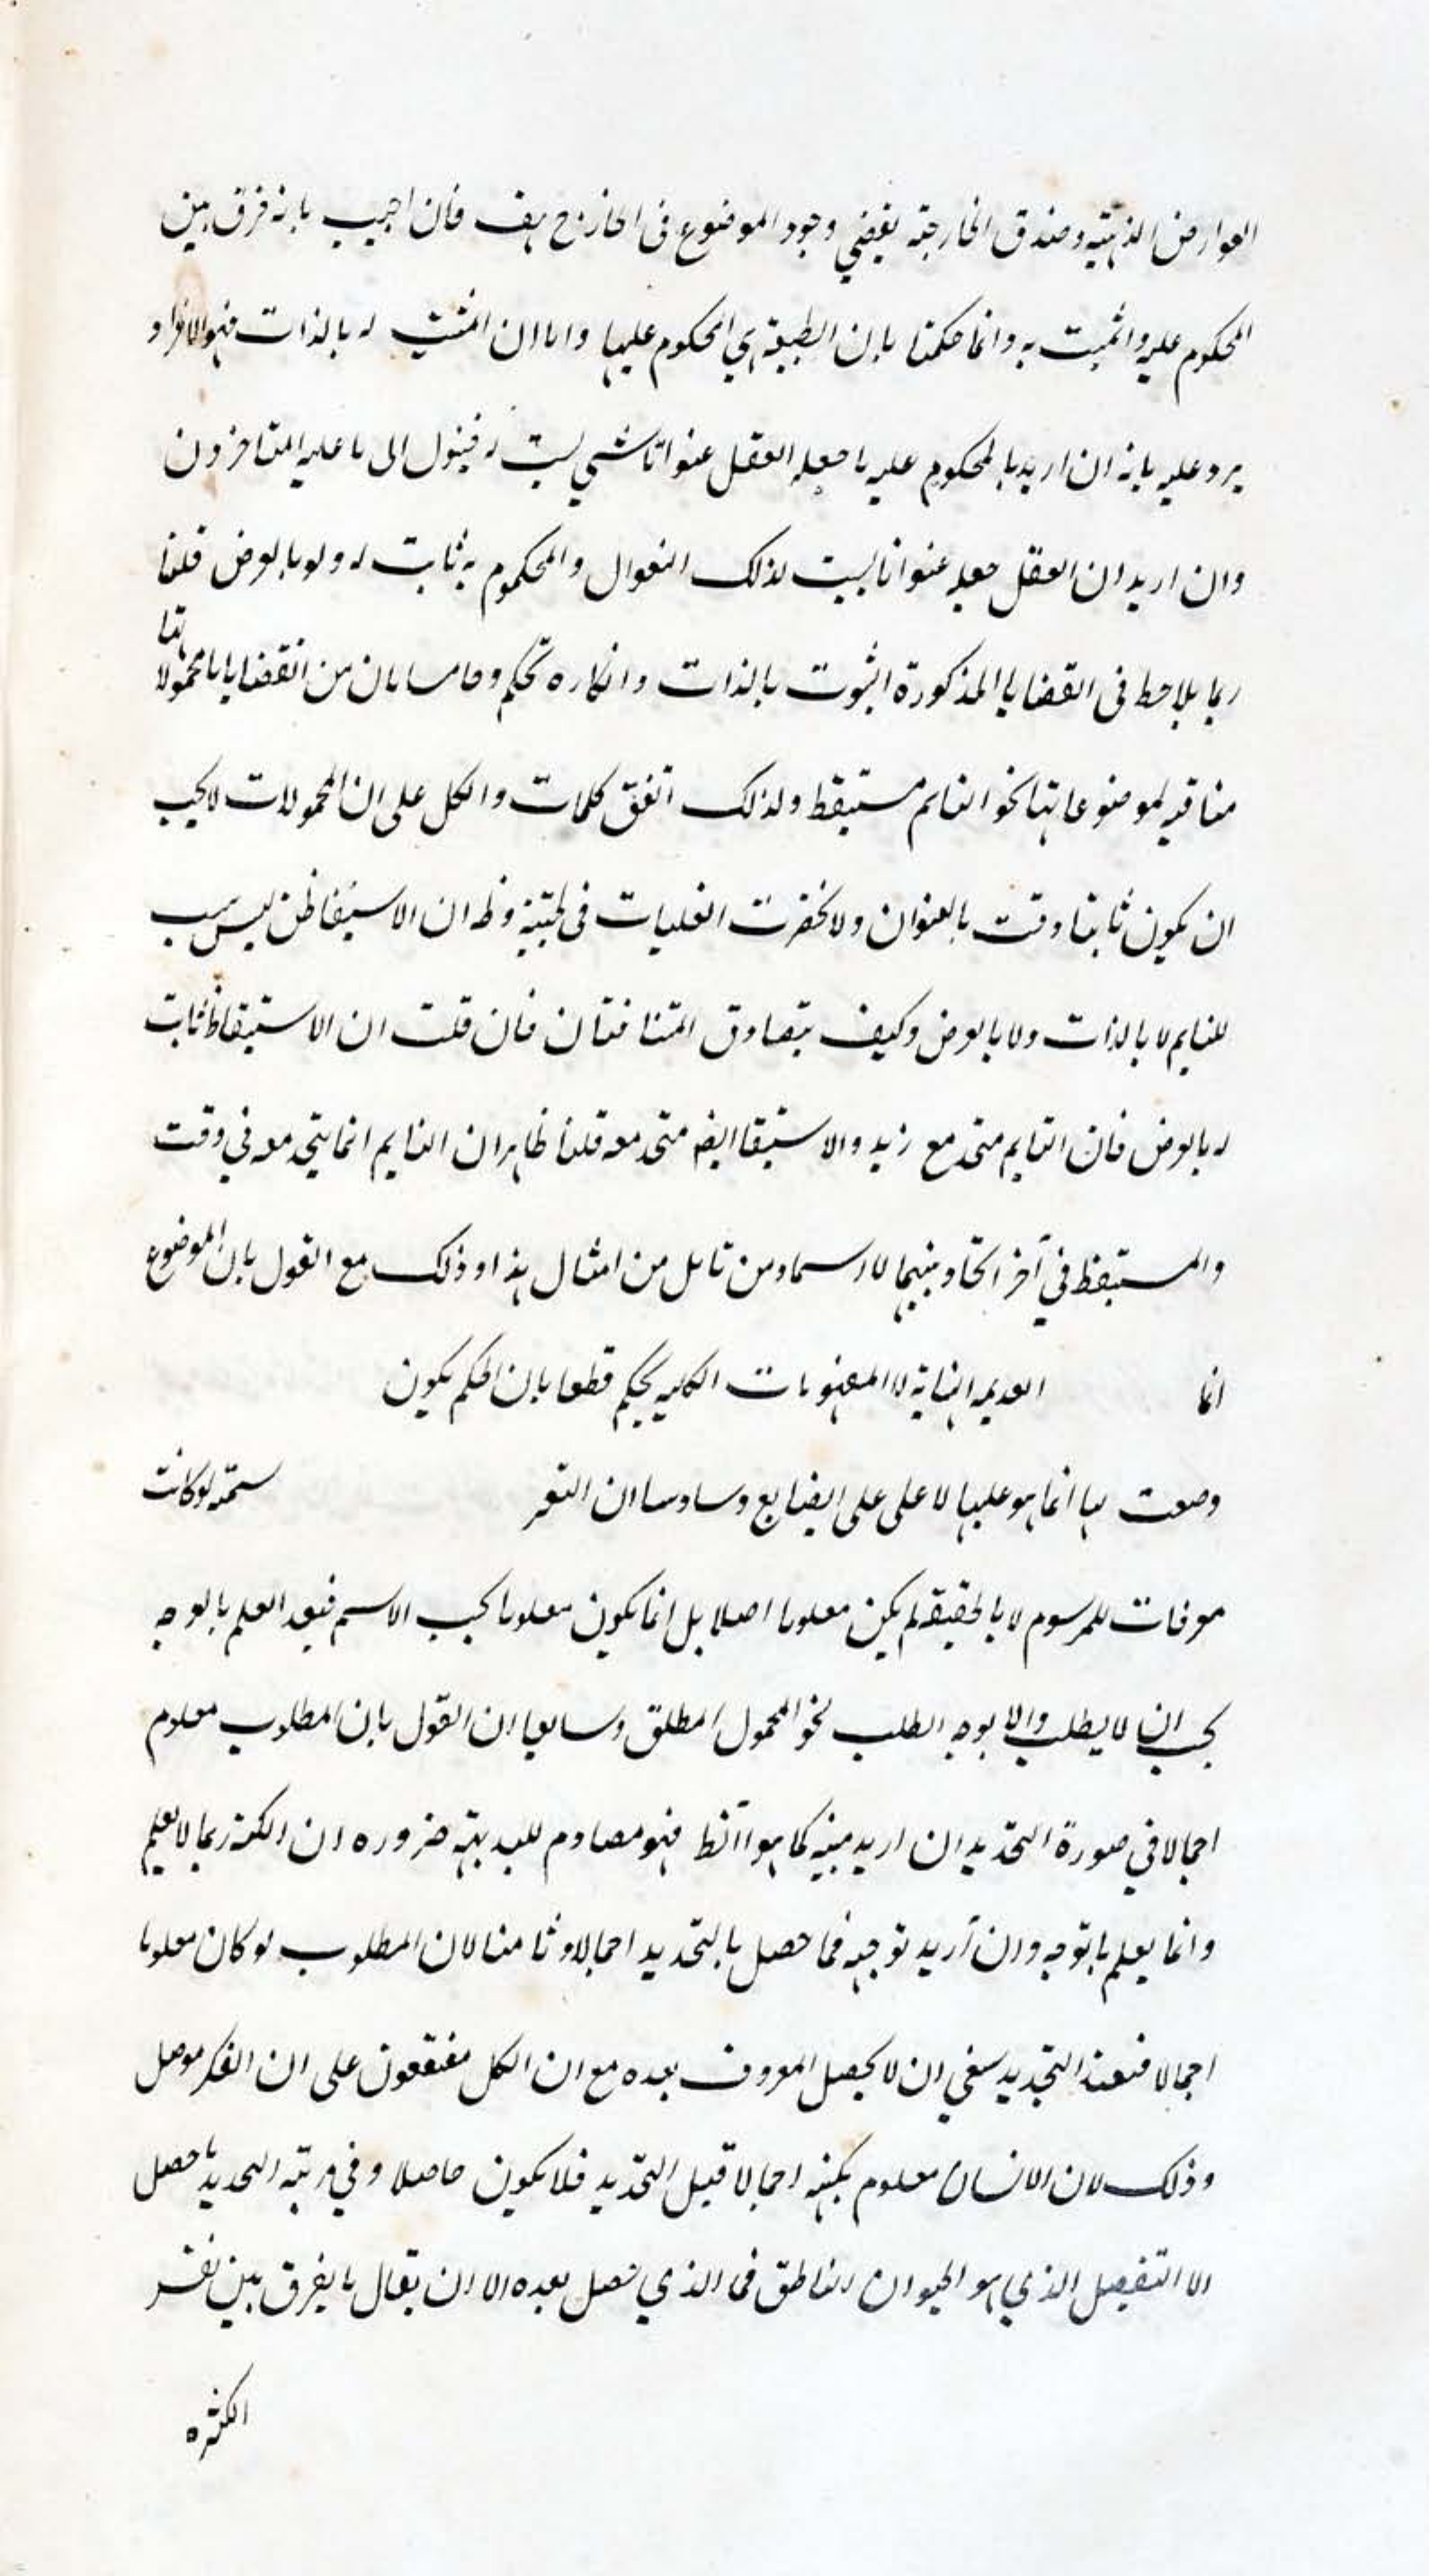 العوارض الذهنية وصدق الخارجية يقتضي وجود الموضوع فى الخارج هف فان اجيب بانه فرق بين
المحكوم عليه والمثبت به وانما حكمنا بان الطبيعة هي المحكوم عليها واما ان المثبت له بالذات فهو الافراد
يرد عليه بانه ان اريد بالمحكوم عليه ما جعله العقل عنوانا لشي ليثبت له فيئول الى ما عليه المتاخرون
وان اريد ان العقل جعله عنوانا ليثبت لذلك المحكوم به ثابت له ولو بالعرض قلنا
ربما يلاحظ فى القضايا المذكورة الثبوت بالذات وانكاره تحكم وخامسا بان من القضايا ما محمولاتها
منافيه لموضوعاتها نحو النايم مستيقظ ولذلك اتفق كلمات والكل على ان المحمولات لا يجب
ان يكون ثابتا وقت بالعنوان ولانحصرت الفعليات فى وظ ان الاستيقاظ ليس يثبت
للنايم لا بالذات ولا بالعرض وكيف يتصادق المتنافتان فان قلت ان الاستيقاظ ثابت
له بالعرض فان النايم متحد مع زيد والاستيقا ايضه متحد معه قلنا ظاهر ان النايم انما يتحد معه في وقت
والمستيقظ في آخر اتحاد بينهما لا ومن تامل من امثال هذا وذلك مع القول بان الموضوع
انما العديمه النهاية لا المفهومات الكليه يحكم قطعا بان الحكم يكون
وصعت لها انما هو عليها لا على على الصنايع وسادسا ان التعر ستمة لو كانت
معرفات للمرسوم لا بالحقيقة لم يكن معلوما اصلا بل انما يكون معلوما بحسب الاسم فبعد العلم بالوجه
يجب ان لا يطلب والا بوجه الطلب نحو المجهول المطلق وسابعا ان القول بان المطلوب معلوم
اجمالا في صورة التحديد ان اريد منه كما هو الظ فهو مصادم للبديهية ضروره ان الكنه ربما لا يعلم
وانما يعلم بالوجه وان اريد توجيه فما حصل بالتحديد اجمالا وثامنا لان المطلوب لو كان معلوما
اجمالا فبعد التحديد ينبغي ان لا يحصل المعروف بعده مع ان الكل متفقون على ان الفكر موصل
وذلك لان الانسان معلوم بكنهه اجمالا قبل التحديد فلا يكون حاصلا وفي مرتبة التحديد ما حصل
الا التفصيل الذي هو الحيوان الناطق فما الذي يحصل بعده الا ان يقال ما يفرق بين نفس
الكثره